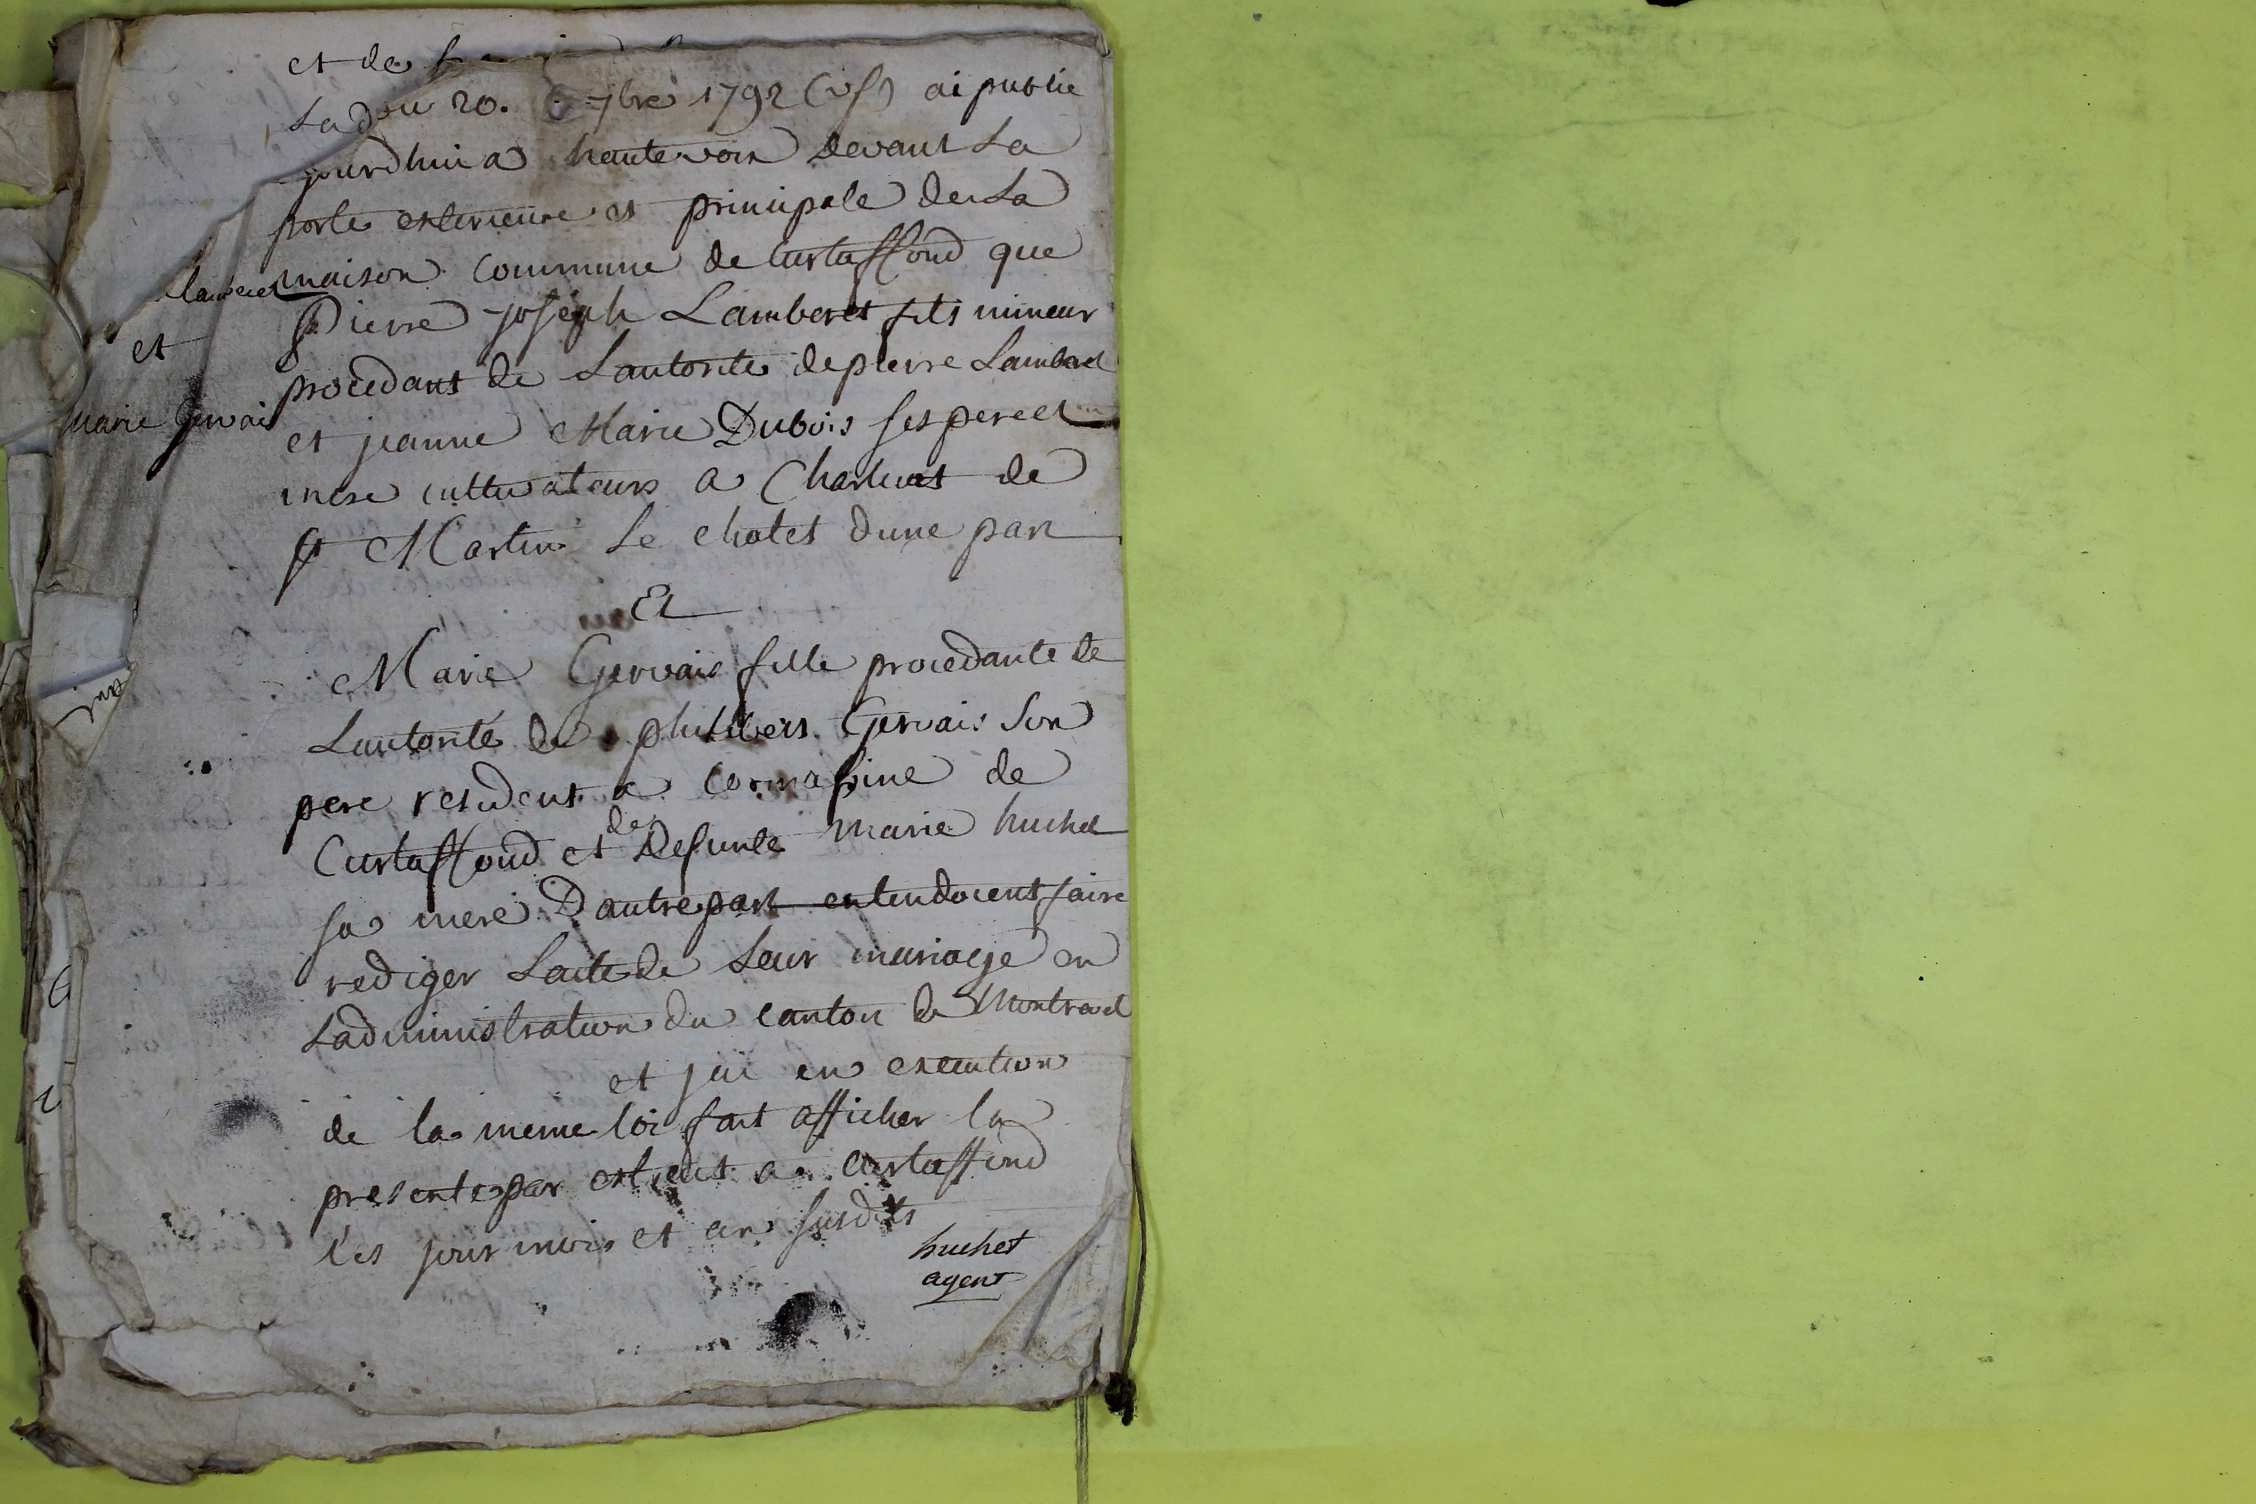 et de
La du 20. 7bre 1792 (vs) ai publie
jourdhui a haute voix devant La
porte exterieure et principale de La
maison commune de Curtaffond que
Lamberet
Pierre joseph Lamberet fils mineur
et
procedant de Lautorite de pierre Lamberet
Marie Gervais
et jeanne Marie Dubois ses pere et
mere cultivateurs a Charluat de
St Martin Le chatel dune part
Et
Marie Gervais fille procedante de
Lautorité de philibers Gervais son
pere resident a Cormassine de
Curtaffond et de Defunte Marie huchet
sa mere Dautre part entendoient faire
rediger Lacte de Leur mariage en
Ladministration du canton de Montrevel
et jai en execution
de la meme loi fait afficher la
presente par extrait a Curtaffond
les jour mois et an susdits
huchet
agent